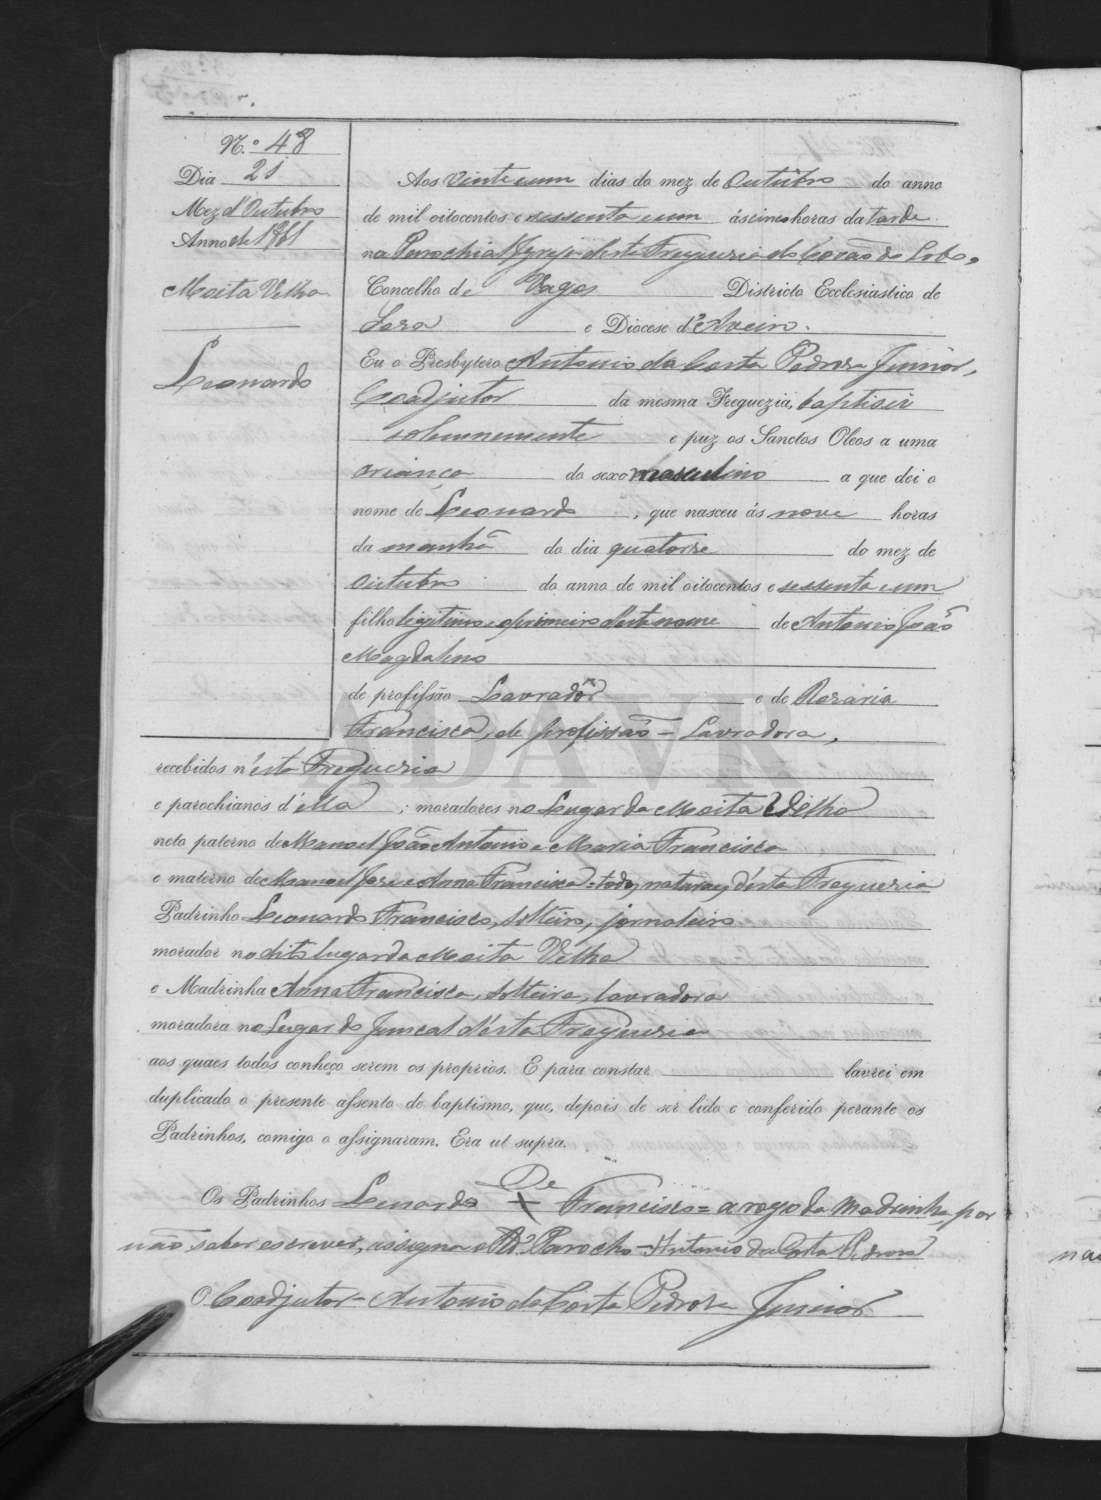 N.º 48
Dia 21
Mez d'Outubro
Anno de 1861
Moita Velha
Leonardo
Aos vinte e um dias do mez de Outubro do anno
de mil oitocentos e sessenta e um ás cinco horas da tarde
na Parochial Igreja desta Freguezia do Covão do Lobo,
Concelho de Vagos Districto Ecclesiastico de
e Diocese d'Aveiro.
Eu o Presbytero Antonio da Costa Pedrosa Junior,
Coadjutor da mesma Freguezia, baptisei
solemnemente e puz os Sanctos Oleos a uma
criança do sexo masculino a que dei o
nome de Leonardo, que nasceu ás nove horas
da manhã do dia quatorse do mez de
Outubro do anno de mil oitocentos e sessenta e um
filho legitimo e primeiro deste nome de Antonio João
Magdaleno
de profissão Lavrador e de Rosaria
Francisca, de profissão = Lavradora,
recebidos n'esta Freguezia
e parochianos d'ella; moradores no Lugar da Moita Velha
neto paterno de Manoel João Antonio e Maria Francisca
e materno de Manoel José e Anna Francisca = todos naturaes d'esta Freguezia
Padrinho Leonardo Francisco, solteiro, jornaleiro
morador no dito lugar da Moita Velha
e Madrinha Anna Francisca, solteira, lavradora
moradora no Lugar do Juncal d'esta Freguezia
aos quaes todos conheço serem os proprios. E para constar lavrei em
duplicado o presente assento de baptismo, que, depois de ser lido e conferido perante os
Padrinhos, comigo o assignaram. Era ut supra.
De
Os Padrinhos Leonardo + Francisco = a rogo da Madrinha, por
não saber escrever, assigna o Rd.º Parocho = Antonio da Costa Pedrosa
O Coadjutor = Antonio da Costa Pedrosa Junior
ADAVR